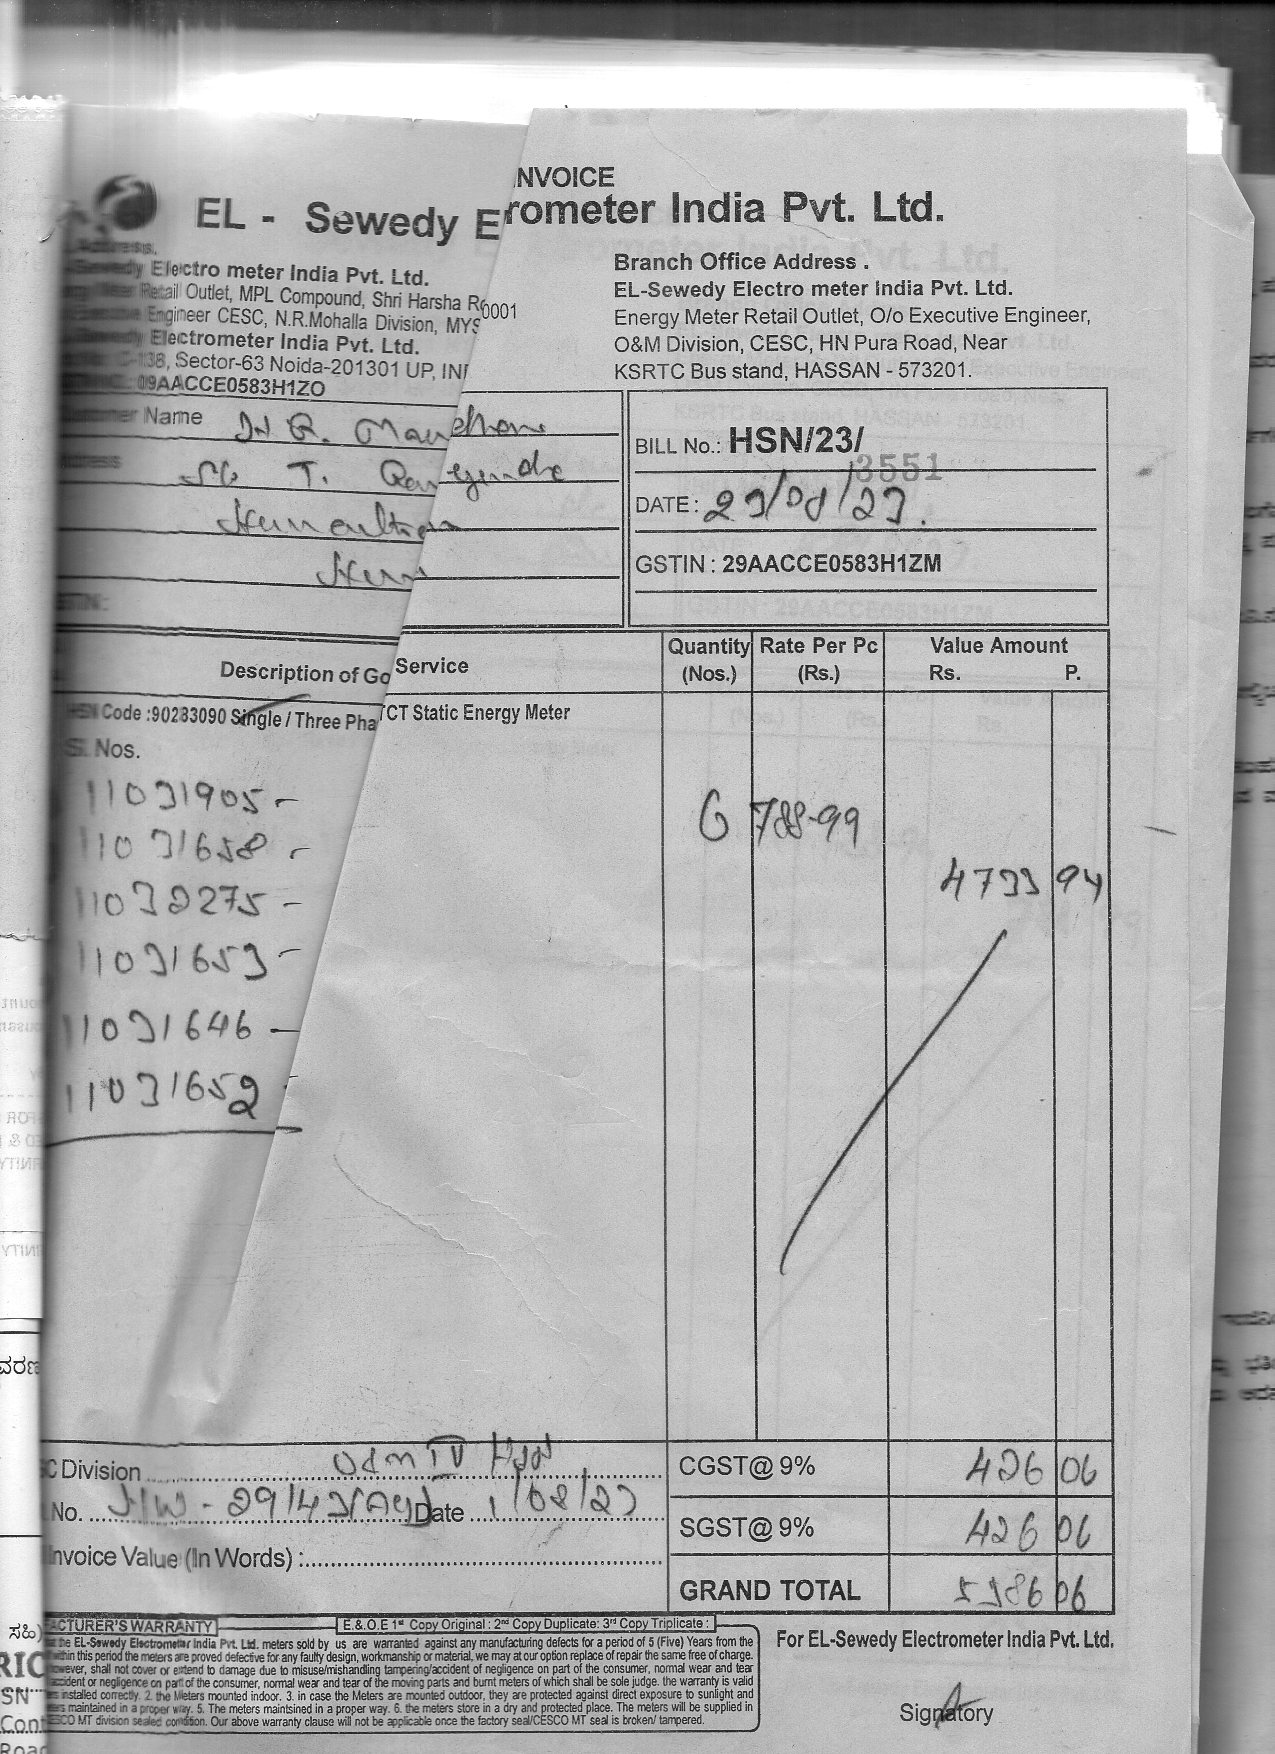 INVOICE
EL - Sewedy E rometer India Pvt. Ltd.
Address.
Sewedy Electro meter India Pvt. Ltd.
Retail Outlet, MPL Compound, Shri Harsha R 0001
Engineer CESC, N.R.Mohalla Division, MYS
Sewedy Electrometer India Pvt. Ltd.
C-138, Sector-63 Noida-201301 UP, IN
09AACCE0583H1ZO
Branch Office Address .
EL-Sewedy Electro meter India Pvt. Ltd.
Energy Meter Retail Outlet, O/o Executive Engineer,
O&M Division, CESC, HN Pura Road, Near
KSRTC Bus stand, HASSAN - 573201.
Customer Name
Address
GSTIN :
BILL No.: HSN/23/ 3551
DATE : 23/08/23.
GSTIN : 29AACCE0583H1ZM
Description of Go Service
Quantity (Nos.)
Rate Per Pc (Rs.)
Value Amount
Rs. P.
HSN Code :90283090 Single / Three Pha CT Static Energy Meter
Sl. Nos.
11031905 -
11031658 -
11032275 -
11031653 -
11031646 -
11031652 -
6 788-99
4733 94
C Division O&M IV HSN
No. Date 1/08/23
Invoice Value (In Words) :
CGST@ 9% 426 06
SGST@ 9% 426 06
GRAND TOTAL 5586 06
E.&.O.E 1st Copy Original : 2nd Copy Duplicate: 3rd Copy Triplicate :
ACTURER'S WARRANTY
the EL-Sewedy Electrometer India Pvt. Ltd. meters sold by us are warranted against any manufacturing defects for a period of 5 (Five) Years from the
within this period the meters are proved defective for any faulty design, workmanship or material, we may at our option replace of repair the same free of charge.
owever, shall not cover or extend to damage due to misuse/mishandling tampering/accident of negligence on part of the consumer, normal wear and tear
accident or negligence on part of the consumer, normal wear and tear of the moving parts and burnt meters of which shall be sole judge. the warranty is valid
installed correctly. 2. the Meters mounted indoor. 3. in case the Meters are mounted outdoor, they are protected against direct exposure to sunlight and
maintained in a proper way. 5. The meters maintsined in a proper way. 6. the meters store in a dry and protected place. The meters will be supplied in
CESCO MT division sealed condition. Our above warranty clause will not be applicable once the factory seal/CESCO MT seal is broken/ tampered.
For EL-Sewedy Electrometer India Pvt. Ltd.
Signatory